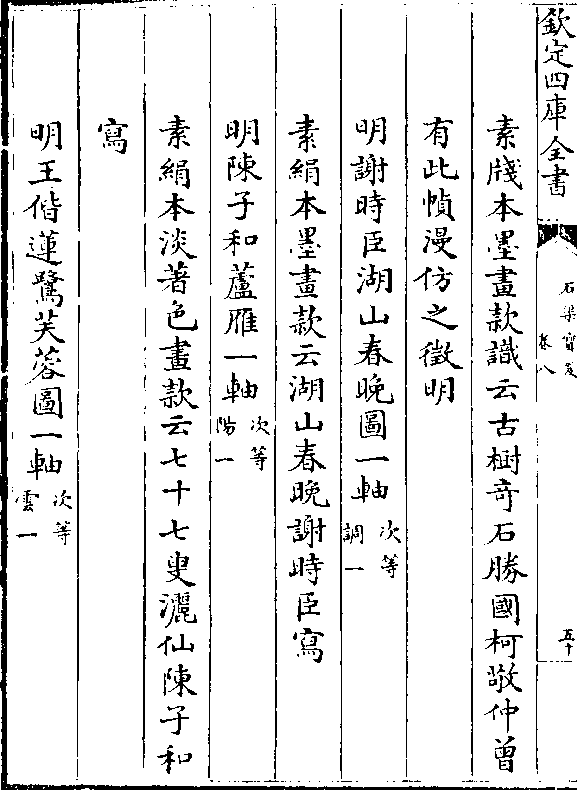 欽定四庫全書
石渠寶笈
卷八
五十
素牋本墨畫款識云古樹竒石勝國柯敬仲曽
有此幀漫仿之徴明
明謝時臣湖山春晚圖一軸 次等 調一
素絹本墨畫款云湖山春晚謝時臣寫
明陳子和蘆雁一軸 次等 陽一
素絹本淡著色畫款云七十七叟灑仙陳子和
寫
明王偕蓮鷺芙蓉圖一軸 次等 雲一